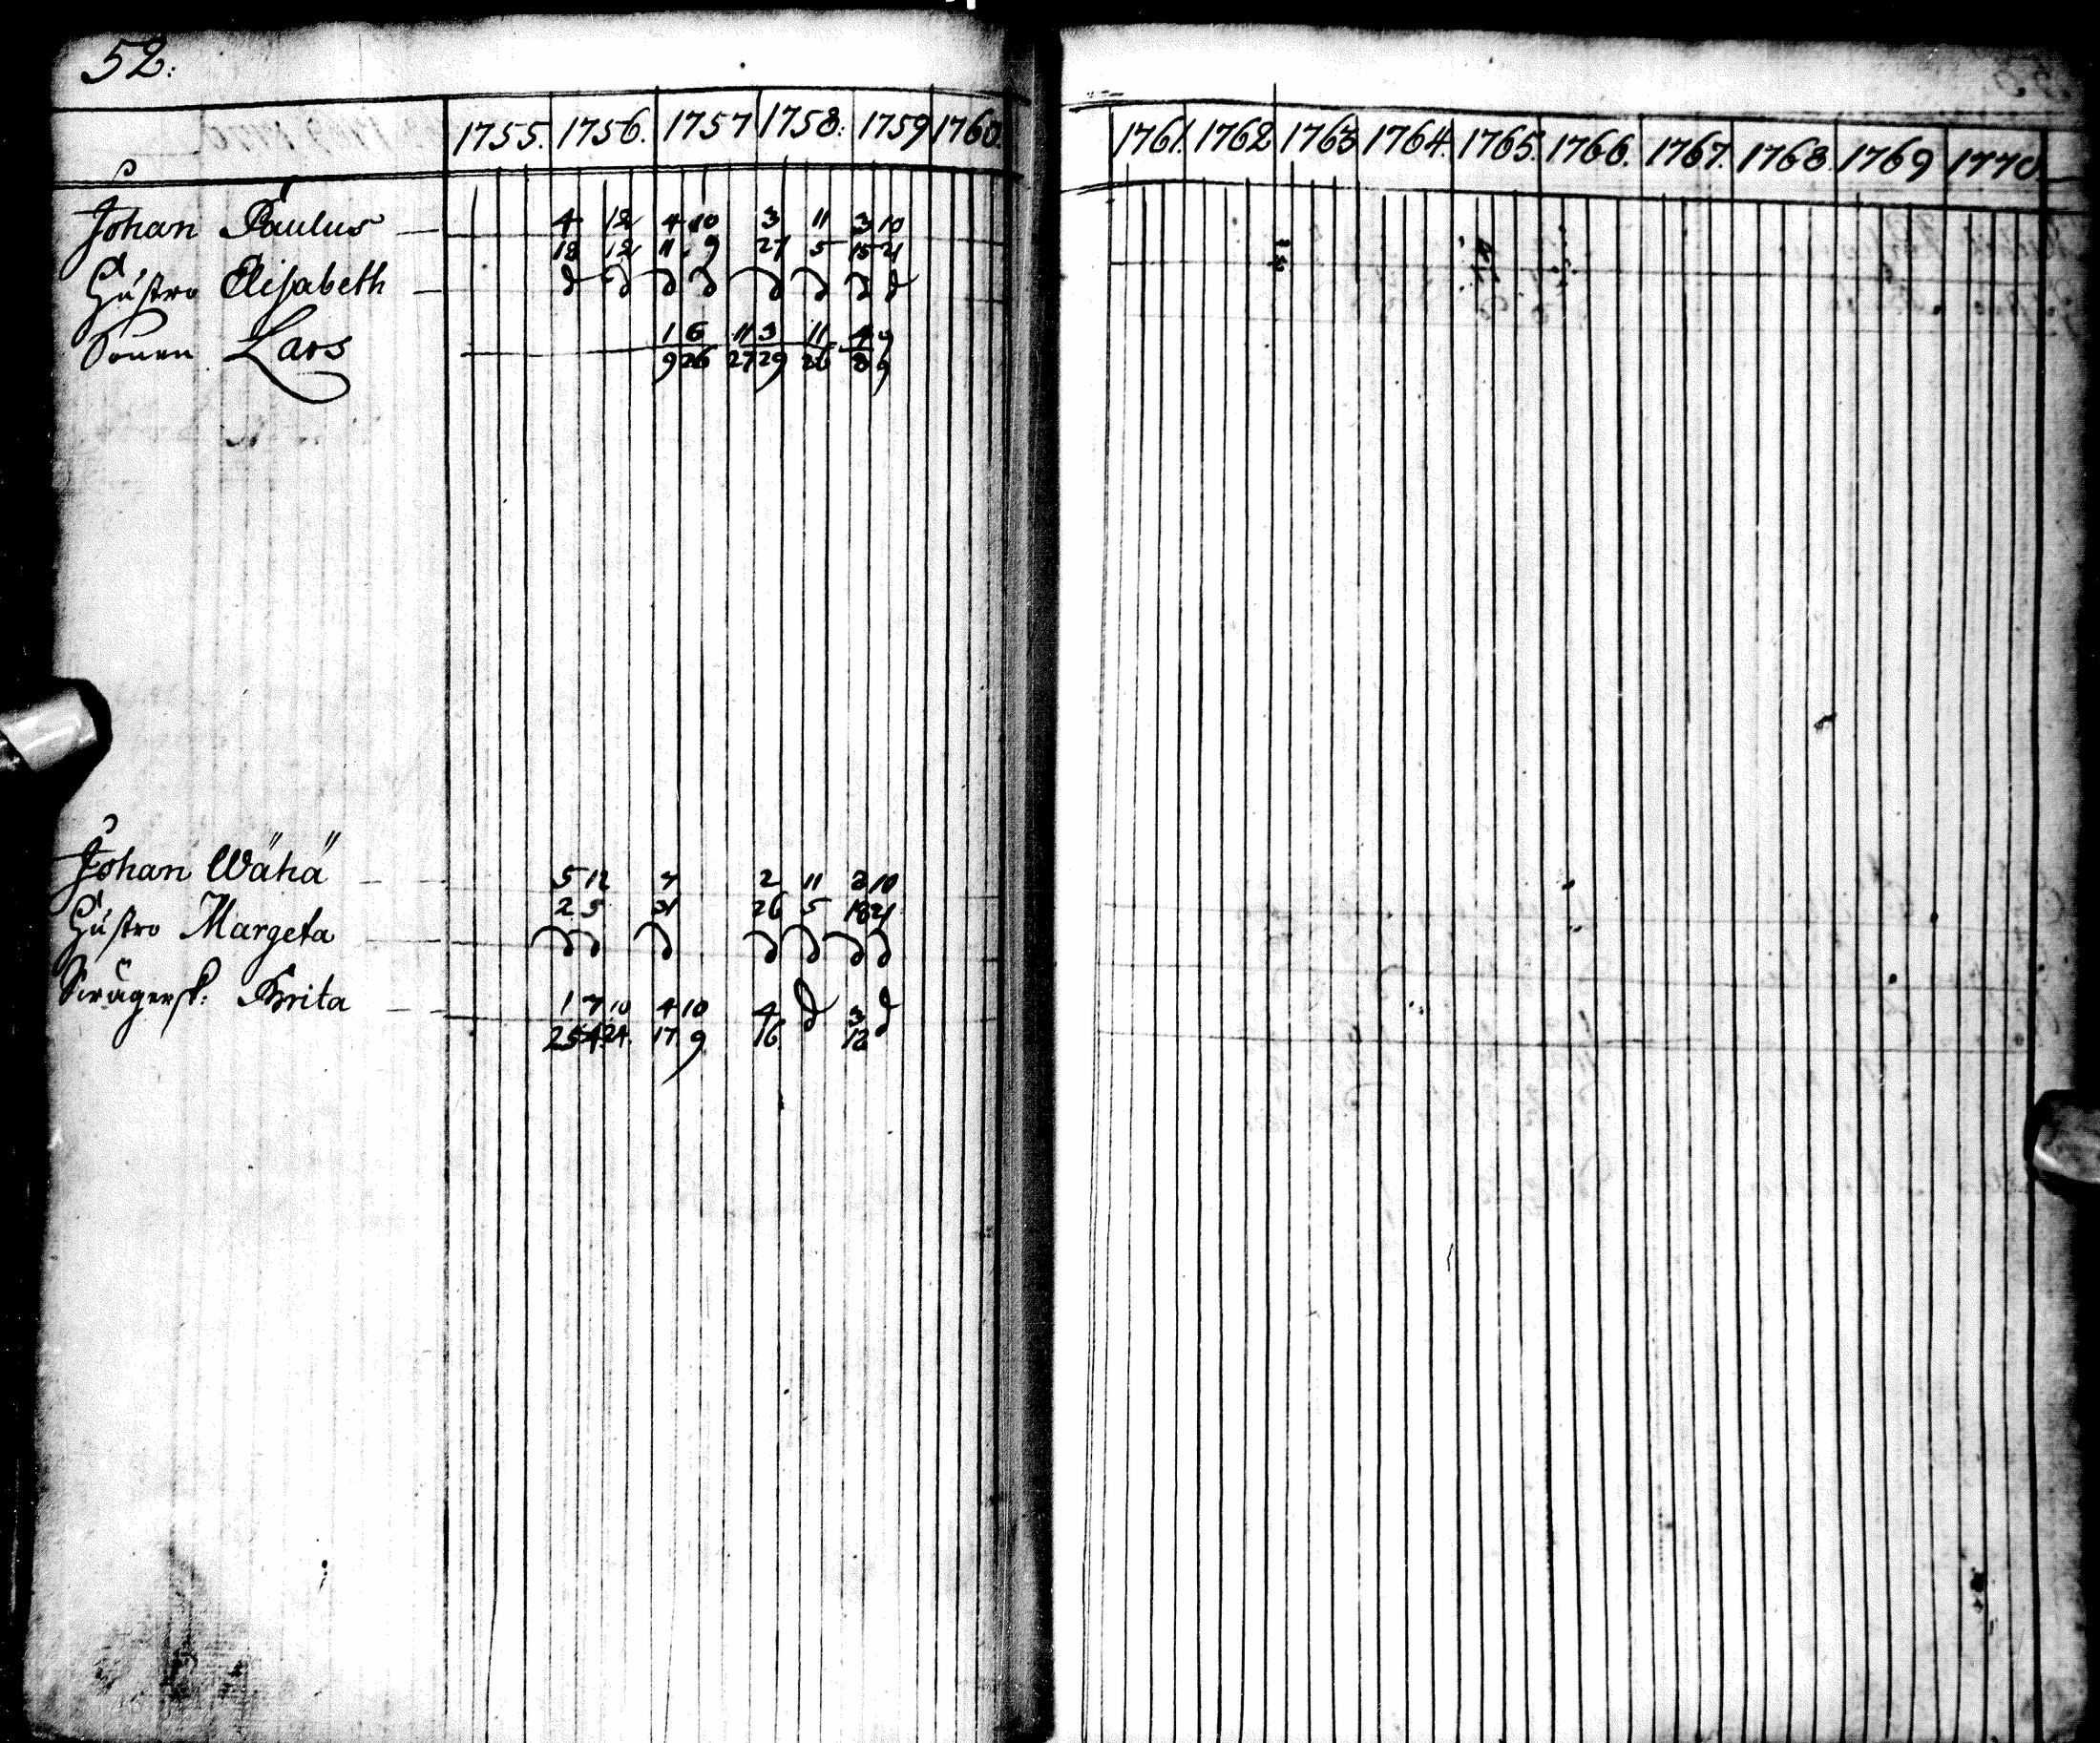 52.
1755. 1756. 1757 1758. 1759 1760. 1761. 1762 1763 1764. 1765. 1766. 1767. 1768. 1769 1770
Johan Paulus 4 12 4 10 3 11 3 10
18 12 11 9 27 5 15 21
Hustro Elisabeth d d d d d d d d
Sonen Lars 1 6 11 3 11 4 9
9 26 27 29 26 8 9
Johan Wähä 5 12 7 2 11 3 10
2 5 31 26 5 18 21
Hustro Margeta d d d d d d d
Swägersk: Brita 1 7 10 4 10 4 d 3 d
25 4 24. 17 9 16 12